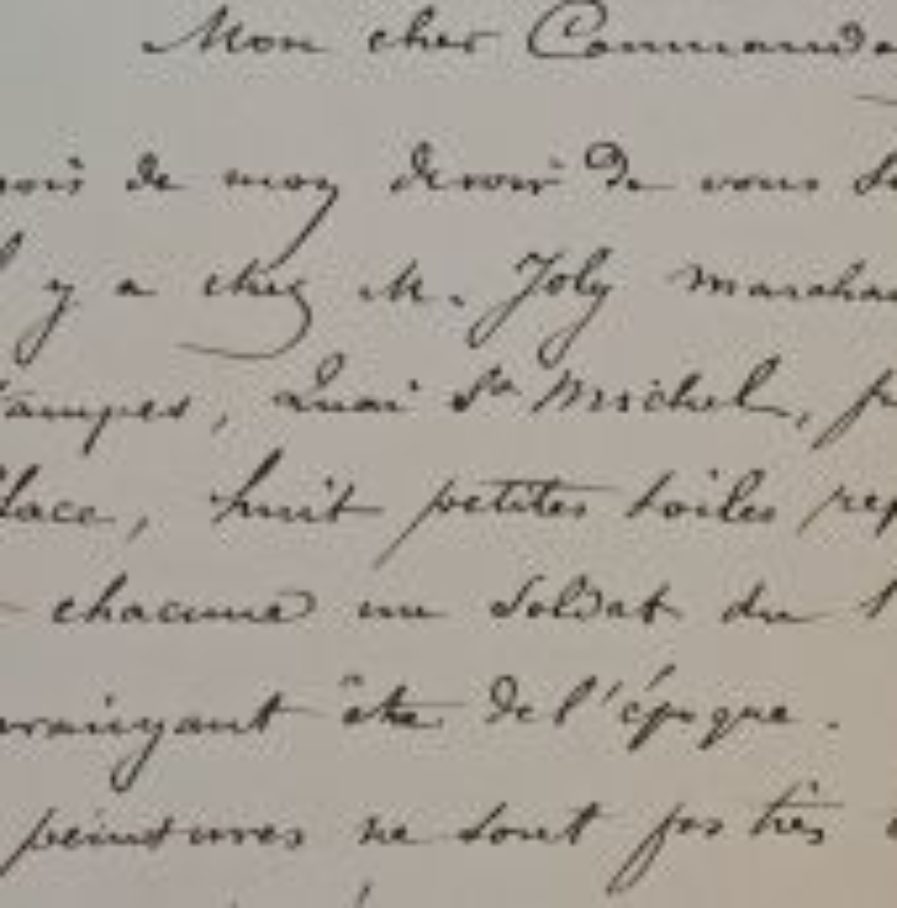 Mon cher Commanda
rois de moy devoir de vous
y a chez M. Joly marchan
tampes, Quai St Michel,
place, huit petites toiles rep
chacune un soldat du 1
paraissant être de l'époque.
peintures ne sont pas très